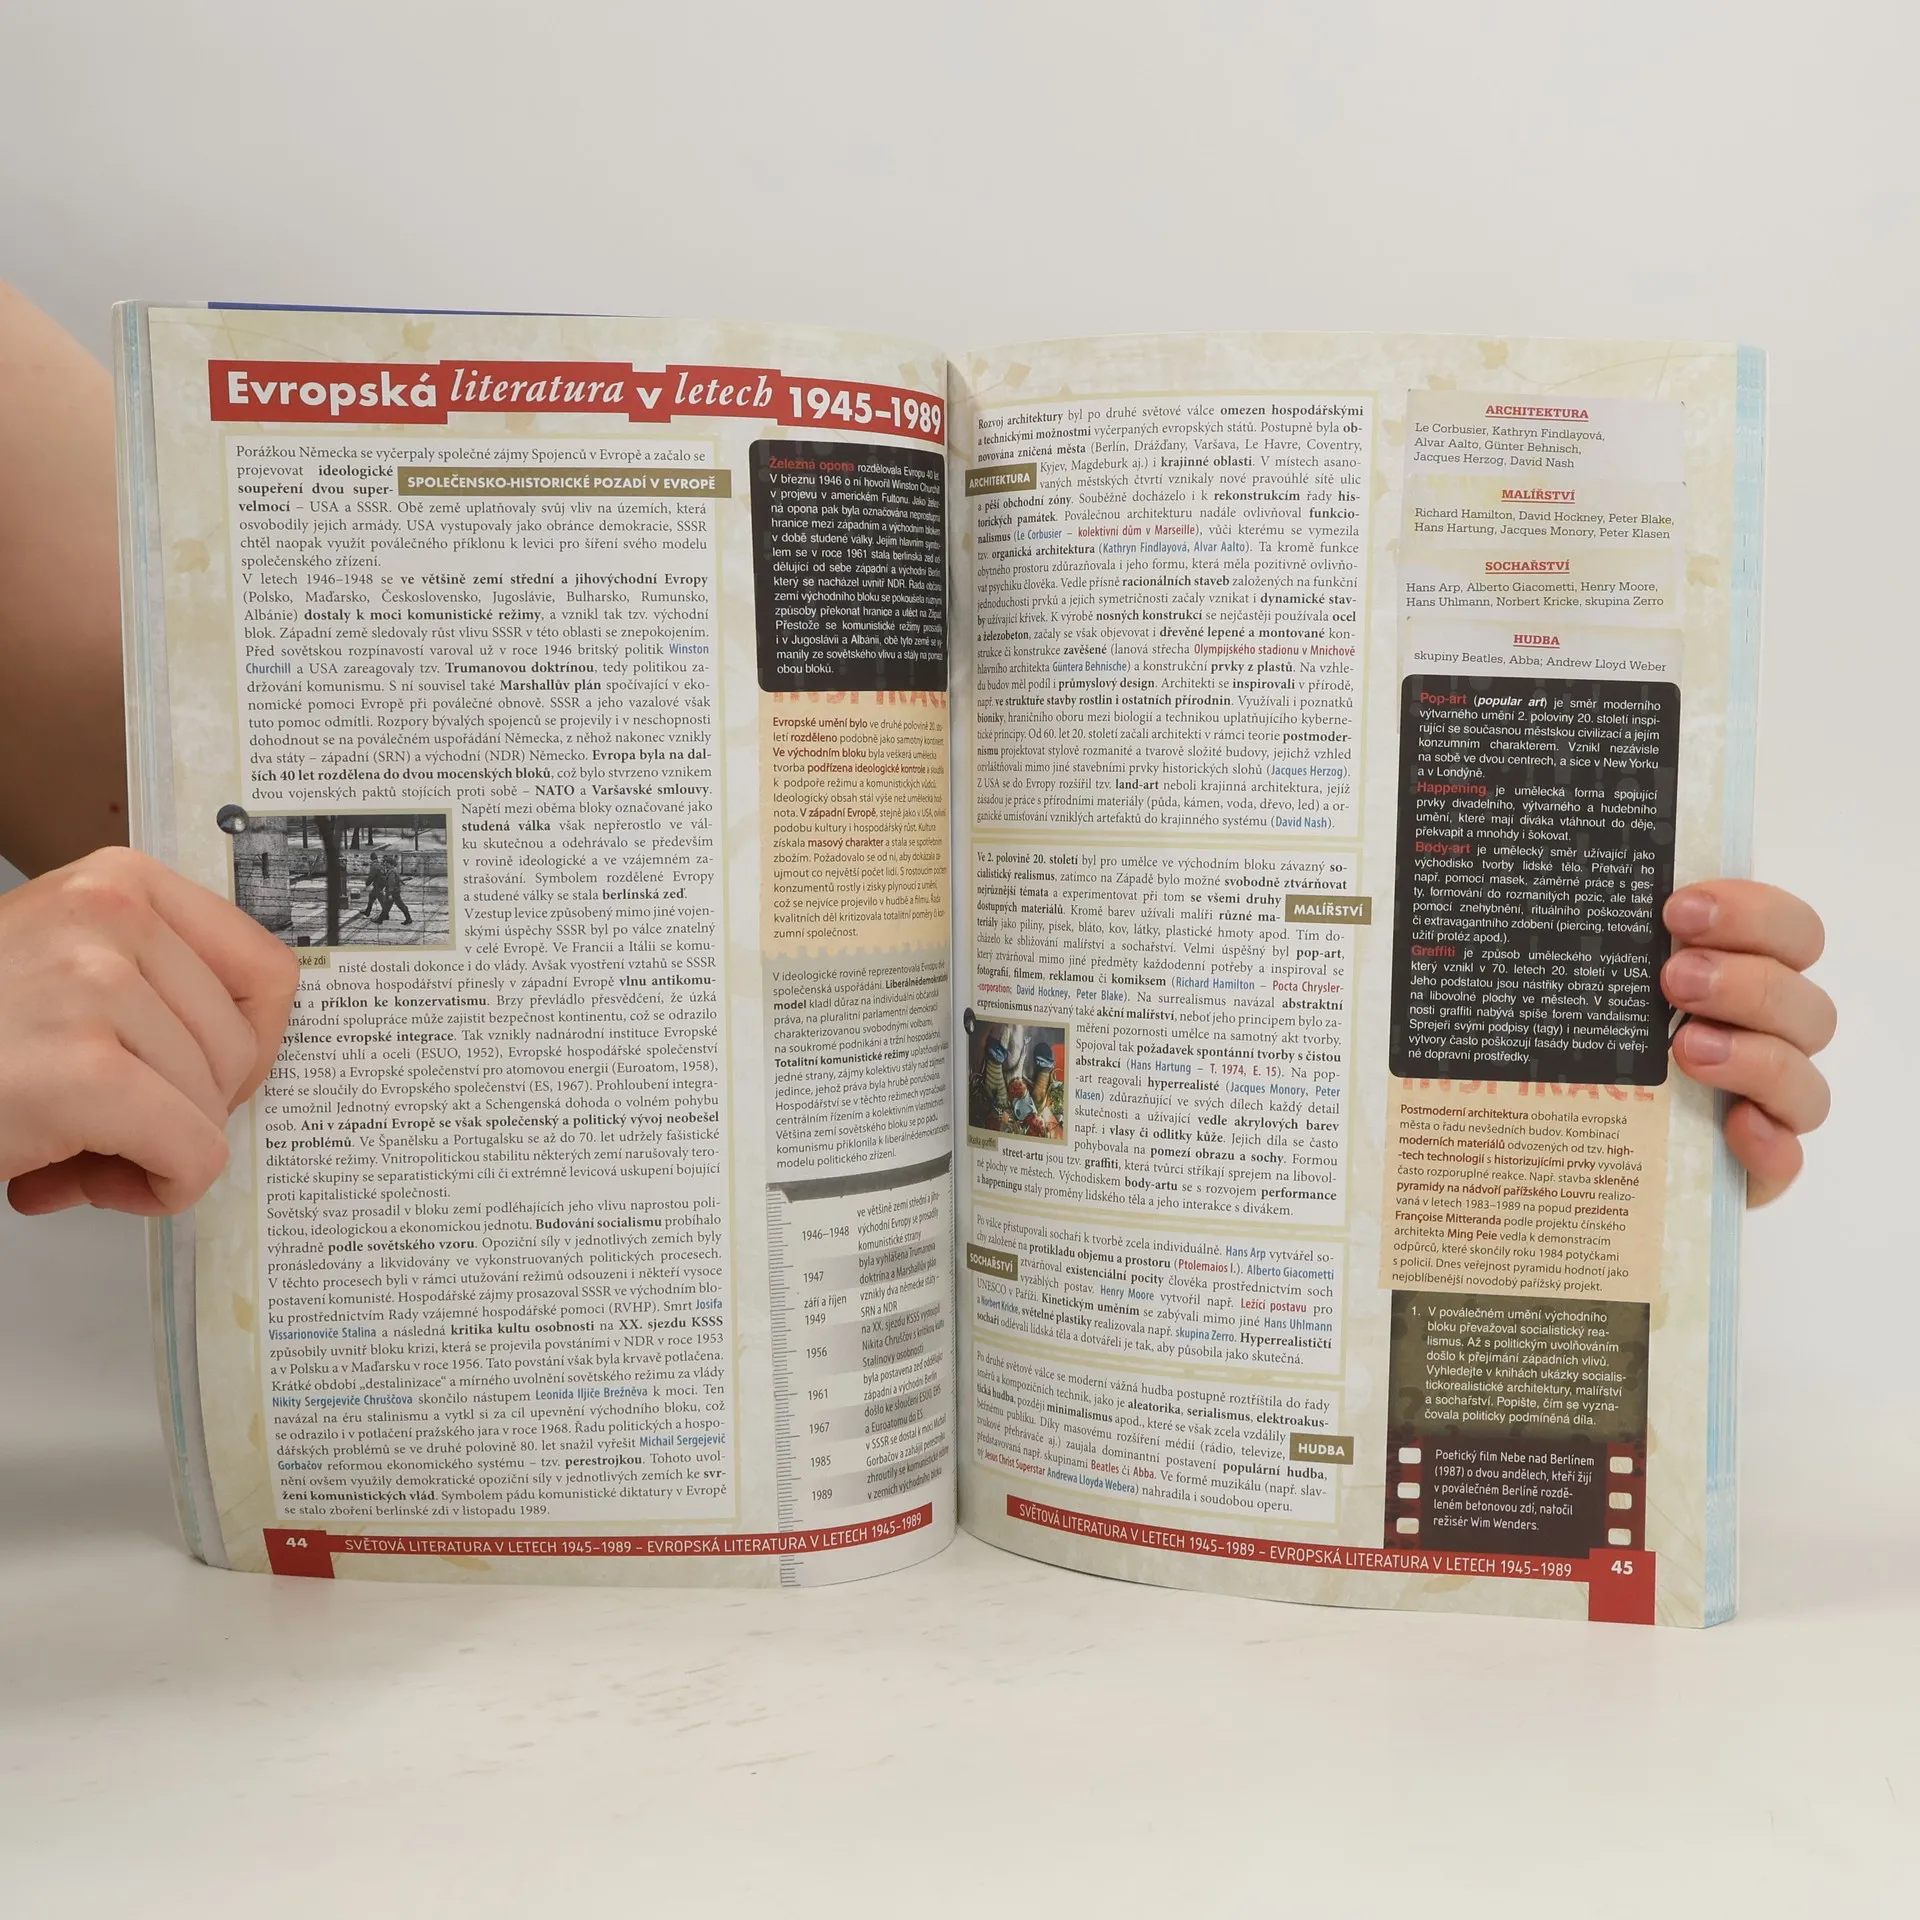 Evropská literatura v letech 1945–1989
Porážkou Německa se vyčerpaly společné zájmy Spojenců v Evropě a začalo se
projevovat ideologické
soupeření dvou super-
SPOLEČENSKO-HISTORICKÉ POZADÍ V EVROPĚ
velmocí – USA a SSSR. Obě země uplatňovaly svůj vliv na územích, která
osvobodily jejich armády. USA vystupovaly jako obránce demokracie, SSSR
chtěl naopak využít poválečného příklonu k levici pro šíření svého modelu
společenského zřízení.
V letech 1946–1948 se ve většině zemí střední a jihovýchodní Evropy
(Polsko, Maďarsko, Československo, Jugoslávie, Bulharsko, Rumunsko,
Albánie) dostaly k moci komunistické režimy, a vznikl tak tzv. východní
blok. Západní země sledovaly růst vlivu SSSR v této oblasti se znepokojením.
Před sovětskou rozpínavostí varoval už v roce 1946 britský politik Winston
Churchill a USA zareagovaly tzv. Trumanovou doktrínou, tedy politikou za-
držování komunismu. S ní souvisel také Marshallův plán spočívající v eko-
nomické pomoci Evropě při poválečné obnově. SSSR a jeho vazalové však
tuto pomoc odmítli. Rozpory bývalých spojenců se projevily i v neschopnosti
dohodnout se na poválečném uspořádání Německa, z něhož nakonec vznikly
dva státy – západní (SRN) a východní (NDR) Německo. Evropa byla na dal-
ších 40 let rozdělena do dvou mocenských bloků, což bylo stvrzeno vznikem
dvou vojenských paktů stojících proti sobě – NATO a Varšavské smlouvy.
Napětí mezi oběma bloky označované jako
studená válka však nepřerostlo ve vál-
ku skutečnou a odehrávalo se především
v rovině ideologické a ve vzájemném za-
strašování. Symbolem rozdělené Evropy
a studené války se stala berlínská zeď.
Vzestup levice způsobený mimo jiné vojen-
skými úspěchy SSSR byl po válce znatelný
v celé Evropě. Ve Francii a Itálii se komu-
ské zdi
nisté dostali dokonce i do vlády. Avšak vyostření vztahů se SSSR
obnova hospodářství přinesly v západní Evropě vlnu antikomu-
a příklon ke konzervatismu. Brzy převládlo přesvědčení, že úzká
národní spolupráce může zajistit bezpečnost kontinentu, což se odrazilo
evropské integrace. Tak vznikly nadnárodní instituce Evropské
olečenství uhlí a oceli (ESUO, 1952), Evropské hospodářské společenství
(EHS, 1958) a Evropské společenství pro atomovou energii (Euroatom, 1958),
které se sloučily do Evropského společenství (ES, 1967). Prohloubení integra-
ce umožnil Jednotný evropský akt a Schengenská dohoda o volném pohybu
osob. Ani v západní Evropě se však společenský a politický vývoj neobešel
bez problémů. Ve Španělsku a Portugalsku se až do 70. let udržely fašistické
diktátorské režimy. Vnitropolitickou stabilitu některých zemí narušovaly tero-
ristické skupiny se separatistickými cíli či extrémně levicová uskupení bojující
proti kapitalistické společnosti.
Sovětský svaz prosadil v bloku zemí podléhajících jeho vlivu naprostou poli-
tickou, ideologickou a ekonomickou jednotu. Budování socialismu probíhalo
výhradně podle sovětského vzoru. Opoziční síly v jednotlivých zemích byly
pronásledovány a likvidovány ve vykonstruovaných politických procesech.
V těchto procesech byli v rámci utužování režimů odsouzeni i někteří vysoce
postavení komunisté. Hospodářské zájmy prosazoval SSSR ve východním blo-
ku prostřednictvím Rady vzájemné hospodářské pomoci (RVHP). Smrt Josifa
Vissarionoviče Stalina a následná kritika kultu osobnosti na XX. sjezdu KSSS
způsobily uvnitř bloku krizi, která se projevila povstáními v NDR v roce 1953
a v Polsku a v Maďarsku v roce 1956. Tato povstání však byla krvavě potlačena.
Krátké období „destalinizace“ a mírného uvolnění sovětského režimu za vlády
Nikity Sergejeviče Chruščova skončilo nástupem Leonida Iljiče Brežněva k moci. Ten
navázal na éru stalinismu a vytkl si za cíl upevnění východního bloku, což
se odrazilo i v potlačení pražského jara v roce 1968. Řadu politických a hospo-
dářských problémů se ve druhé polovině 80. let snažil vyřešit Michail Sergejevič
Gorbačov reformou ekonomického systému – tzv. perestrojkou. Tohoto uvol-
nění ovšem využily demokratické opoziční síly v jednotlivých zemích ke svr-
žení komunistických vlád. Symbolem pádu komunistické diktatury v Evropě
se stalo zboření berlínské zdi v listopadu 1989.
Železná opona rozdělovala Evropu 40 let.
V březnu 1946 o ní hovořil Winston Churchill
v projevu v americkém Fultonu. Jako želez-
ná opona pak byla označována neprostupná
hranice mezi západním a východním blokem
v době studené války. Jejím hlavním symbo-
lem se v roce 1961 stala berlínská zeď od-
dělující od sebe západní a východní Berlín,
který se nacházel uvnitř NDR. Řada občanů
zemí východního bloku se pokoušela různými
způsoby překonat hranice a utéct na Západ.
Přestože se komunistické režimy prosadily
i v Jugoslávii a Albánii, obě tyto země se vy-
manily ze sovětského vlivu a stály na pomezí
obou bloků.
INSPIRACE
Evropské umění bylo ve druhé polovině 20. sto-
letí rozděleno podobně jako samotný kontinent.
Ve východním bloku byla veškerá umělecká
tvorba podřízena ideologické kontrole a sloužila
k podpoře režimu a komunistických vůdců.
Ideologický obsah stál výše než umělecká hod-
nota. V západní Evropě, stejně jako v USA, ovlivnil
podobu kultury i hospodářský růst. Kultura
získala masový charakter a stala se spotřebním
zbožím. Požadovalo se od ní, aby dokázala za-
ujmout co největší počet lidí. S rostoucím počtem
konzumentů rostly i zisky plynoucí z umění,
což se nejvíce projevilo v hudbě a filmu. Řada
kvalitních děl kritizovala totalitní poměry či kon-
zumní společnost.
V ideologické rovině reprezentovala Evropu dvě
společenská uspořádání. Liberálnědemokratický
model kladl důraz na individuální občanská
práva, na pluralitní parlamentní demokracii
charakterizovanou svobodnými volbami,
na soukromé podnikání a tržní hospodářství.
Totalitní komunistické režimy uplatňovaly vládu
jedné strany, zájmy kolektivu stály nad zájmy
jedince, jehož práva byla hrubě porušována.
Hospodářství se v těchto režimech vyznačovalo
centrálním řízením a kolektivním vlastnictvím.
Většina zemí sovětského bloku se po pádu
komunismu přiklonila k liberálnědemokratickému
modelu politického zřízení.
1946–1948 ve většině zemí střední a jiho-
východní Evropy se prosadily
komunistické strany
1947 byla vyhlášena Trumanova
doktrína a Marshallův plán
září a říjen 1949 vznikly dva německé státy –
SRN a NDR
1956 na XX. sjezdu KSSS vystoupil
Nikita Chruščov s kritikou kultu
Stalinovy osobnosti
1961 byla postavena zeď oddělující
západní a východní Berlín
1967 došlo ke sloučení ESUO, EHS
a Euroatomu do ES
1985 v SSSR se dostal k moci Michail
Gorbačov a zahájil perestrojku
1989 zhroutily se komunistické režimy
v zemích východního bloku
44 SVĚTOVÁ LITERATURA V LETECH 1945–1989 – EVROPSKÁ LITERATURA V LETECH 1945–1989
Rozvoj architektury byl po druhé světové válce omezen hospodářskými
a technickými možnostmi vyčerpaných evropských států. Postupně byla ob-
novována zničená města (Berlín, Drážďany, Varšava, Le Havre, Coventry,
ARCHITEKTURA
Kyjev, Magdeburk aj.) i krajinné oblasti. V místech asano-
vaných městských čtvrtí vznikaly nové pravoúhlé sítě ulic
a pěší obchodní zóny. Souběžně docházelo i k rekonstrukcím řady his-
torických památek. Poválečnou architekturu nadále ovlivňoval funkcio-
nalismus (Le Corbusier – kolektivní dům v Marseille), vůči kterému se vymezila
tzv. organická architektura (Kathryn Findlayová, Alvar Aalto). Ta kromě funkce
obytného prostoru zdůrazňovala i jeho formu, která měla pozitivně ovlivňo-
vat psychiku člověka. Vedle přísně racionálních staveb založených na funkční
jednoduchosti prvků a jejich symetričnosti začaly vznikat i dynamické stav-
by užívající křivek. K výrobě nosných konstrukcí se nejčastěji používala ocel
a železobeton, začaly se však objevovat i dřevěné lepené a montované kon-
strukce či konstrukce zavěšené (lanová střecha Olympijského stadionu v Mnichově
hlavního architekta Güntera Behnische) a konstrukční prvky z plastů. Na vzhle-
du budov měl podíl i průmyslový design. Architekti se inspirovali v přírodě,
např. ve struktuře stavby rostlin i ostatních přírodnin. Využívali i poznatků
bioniky, hraničního oboru mezi biologií a technikou uplatňujícího kyberne-
tické principy. Od 60. let 20. století začali architekti v rámci teorie postmoder-
nismu projektovat stylově rozmanité a tvarově složité budovy, jejichž vzhled
ozvláštňovali mimo jiné stavebními prvky historických slohů (Jacques Herzog).
Z USA se do Evropy rozšířil tzv. land-art neboli krajinná architektura, jejíž
zásadou je práce s přírodními materiály (půda, kámen, voda, dřevo, led) a or-
ganické umisťování vzniklých artefaktů do krajinného systému (David Nash).
Ve 2. polovině 20. století byl pro umělce ve východním bloku závazný so-
cialistický realismus, zatímco na Západě bylo možné svobodně ztvárňovat
nejrůznější témata a experimentovat při tom se všemi druhy
MALÍŘSTVÍ
dostupných materiálů. Kromě barev užívali malíři různé ma-
teriály jako piliny, písek, bláto, kov, látky, plastické hmoty apod. Tím do-
cházelo ke sbližování malířství a sochařství. Velmi úspěšný byl pop-art,
který ztvárňoval mimo jiné předměty každodenní potřeby a inspiroval se
fotografií, filmem, reklamou či komiksem (Richard Hamilton – Pocta Chrysler-
-corporation; David Hockney, Peter Blake). Na surrealismus navázal abstraktní
expresionismus nazývaný také akční malířství, neboť jeho principem bylo za-
měření pozornosti umělce na samotný akt tvorby.
Spojoval tak požadavek spontánní tvorby s čistou
abstrakcí (Hans Hartung – T. 1974, E. 15). Na pop-
-art reagovali hyperrealisté (Jacques Monory, Peter
Klasen) zdůrazňující ve svých dílech každý detail
skutečnosti a užívající vedle akrylových barev
např. i vlasy či odlitky kůže. Jejich díla se často
pohybovala na pomezí obrazu a sochy. Formou
street-artu jsou tzv. graffiti, která tvůrci stříkají sprejem na libovol-
né plochy ve městech. Východiskem body-artu se s rozvojem performance
a happeningu staly proměny lidského těla a jeho interakce s divákem.
Ukázka graffiti
Po válce přistupovali sochaři k tvorbě zcela individuálně. Hans Arp vytvářel so-
chy založené na protikladu objemu a prostoru (Ptolemaios I.). Alberto Giacometti
SOCHAŘSTVÍ
ztvárňoval existenciální pocity člověka prostřednictvím soch
vyzáblých postav. Henry Moore vytvořil např. Ležící postavu pro
UNESCO v Paříži. Kinetickým uměním se zabývali mimo jiné Hans Uhlmann
a Norbert Kricke, světelné plastiky realizovala např. skupina Zerro. Hyperrealističtí
sochaři odlévali lidská těla a dotvářeli je tak, aby působila jako skutečná.
Po druhé světové válce se moderní vážná hudba postupně roztříštila do řady
směrů a kompozičních technik, jako je aleatorika, serialismus, elektroakus-
tická hudba, později minimalismus apod., které se však zcela vzdálily
HUDBA
běžnému publiku. Díky masovému rozšíření médií (rádio, televize,
zvukové přehrávače aj.) zaujala dominantní postavení populární hudba,
představovaná např. skupinami Beatles či Abba. Ve formě muzikálu (např. slav-
ný Jesus Christ Superstar Andrewa Lloyda Webera) nahradila i soudobou operu.
ARCHITEKTURA
Le Corbusier, Kathryn Findlayová,
Alvar Aalto, Günter Behnisch,
Jacques Herzog, David Nash
MALÍŘSTVÍ
Richard Hamilton, David Hockney, Peter Blake,
Hans Hartung, Jacques Monory, Peter Klasen
SOCHAŘSTVÍ
Hans Arp, Alberto Giacometti, Henry Moore,
Hans Uhlmann, Norbert Kricke, skupina Zerro
HUDBA
skupiny Beatles, Abba; Andrew Lloyd Weber
Pop-art (popular art) je směr moderního
výtvarného umění 2. poloviny 20. století inspi-
rující se současnou městskou civilizací a jejím
konzumním charakterem. Vznikl nezávisle
na sobě ve dvou centrech, a sice v New Yorku
a v Londýně.
Happening je umělecká forma spojující
prvky divadelního, výtvarného a hudebního
umění, které mají diváka vtáhnout do děje,
překvapit a mnohdy i šokovat.
Body-art je umělecký směr užívající jako
východisko tvorby lidské tělo. Přetváří ho
např. pomocí masek, záměrné práce s ges-
ty, formování do rozmanitých pozic, ale také
pomocí znehybnění, rituálního poškozování
či extravagantního zdobení (piercing, tetování,
užití protéz apod.).
Graffiti je způsob uměleckého vyjádření,
který vznikl v 70. letech 20. století v USA.
Jeho podstatou jsou nástřiky obrazů sprejem
na libovolné plochy ve městech. V součas-
nosti graffiti nabývá spíše forem vandalismu:
Sprejeři svými podpisy (tagy) i neuměleckými
výtvory často poškozují fasády budov či veřej-
né dopravní prostředky.
INSPIRACE
Postmoderní architektura obohatila evropská
města o řadu nevšedních budov. Kombinací
moderních materiálů odvozených od tzv. high-
-tech technologií s historizujícími prvky vyvolává
často rozporuplné reakce. Např. stavba skleněné
pyramidy na nádvoří pařížského Louvru realizo-
vaná v letech 1983–1989 na popud prezidenta
Françoise Mitteranda podle projektu čínského
architekta Ming Peie vedla k demonstracím
odpůrců, které skončily roku 1984 potyčkami
s policií. Dnes veřejnost pyramidu hodnotí jako
nejoblíbenější novodobý pařížský projekt.
1. V poválečném umění východního
bloku převažoval socialistický rea-
lismus. Až s politickým uvolňováním
došlo k přejímání západních vlivů.
Vyhledejte v knihách ukázky socialis-
tickorealistické architektury, malířství
a sochařství. Popište, čím se vyzna-
čovala politicky podmíněná díla.
Poetický film Nebe nad Berlínem
(1987) o dvou andělech, kteří žijí
v poválečném Berlíně rozdě-
leném betonovou zdí, natočil
režisér Wim Wenders.
SVĚTOVÁ LITERATURA V LETECH 1945–1989 – EVROPSKÁ LITERATURA V LETECH 1945–1989 45